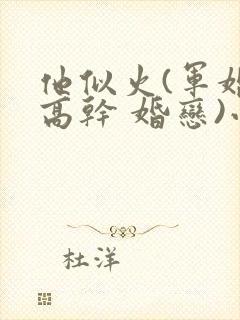 他似火(軍婚
高幹 婚戀)小
杜洋